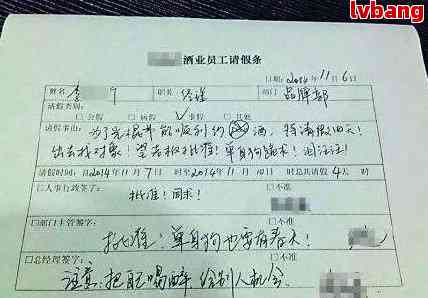 lvbang
酒业员工请假条
日期:2014年11月6日
姓名 李 职务 经理 部门 品牌部
请假类别:
□公假 □病假 ☑事假 □其他
请假事由: 为了光棍节能顺利约 酒,特请假四天!
出去找对象!望老板批准!单身狗跪求!泪汪汪!
请假时间:自2014年11月7日 时至2014年11月10日 时总共请假4天 时
□人事行政签字: □不准
批准!同求!
□部门主管签字: □不准
批准!单身狗也要有春天!
□总经理签字: □不准
注意:把自己喝醉 给别人机会.